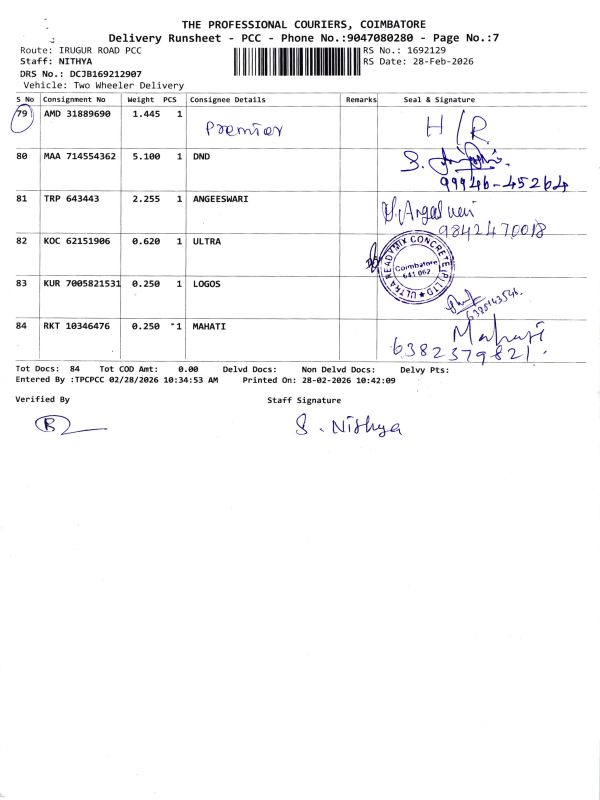 THE PROFESSIONAL COURIERS, COIMBATORE
Delivery Runsheet - PCC - Phone No.:9047080280 - Page No.:7
Route: IRUGUR ROAD PCC RS No.: 1692129
Staff: NITHYA RS Date: 28-Feb-2026
DRS No.: DCJB169212907
Vehicle: Two Wheeler Delivery
S No Consignment No Weight PCS Consignee Details Remarks Seal & Signature
79 AMD 31889690 1.445 1 Premier H/R
80 MAA 714554362 5.100 1 DND S.
99946-45264
81 TRP 643443 2.255 1 ANGEESWARI
9842470018
82 KOC 62151906 0.620 1 ULTRA
ULTRA READYMIX CONCRETE (P) LTD
Coimbatore
641 062
83 KUR 7005821531 0.250 1 LOGOS
84 RKT 10346476 0.250 1 MAHATI
6382379821
Tot Docs: 84 Tot COD Amt: 0.00 Delvd Docs: Non Delvd Docs: Delvy Pts:
Entered By :TPCPCC 02/28/2026 10:34:53 AM Printed On: 28-02-2026 10:42:09
Verified By Staff Signature
S. Nithya